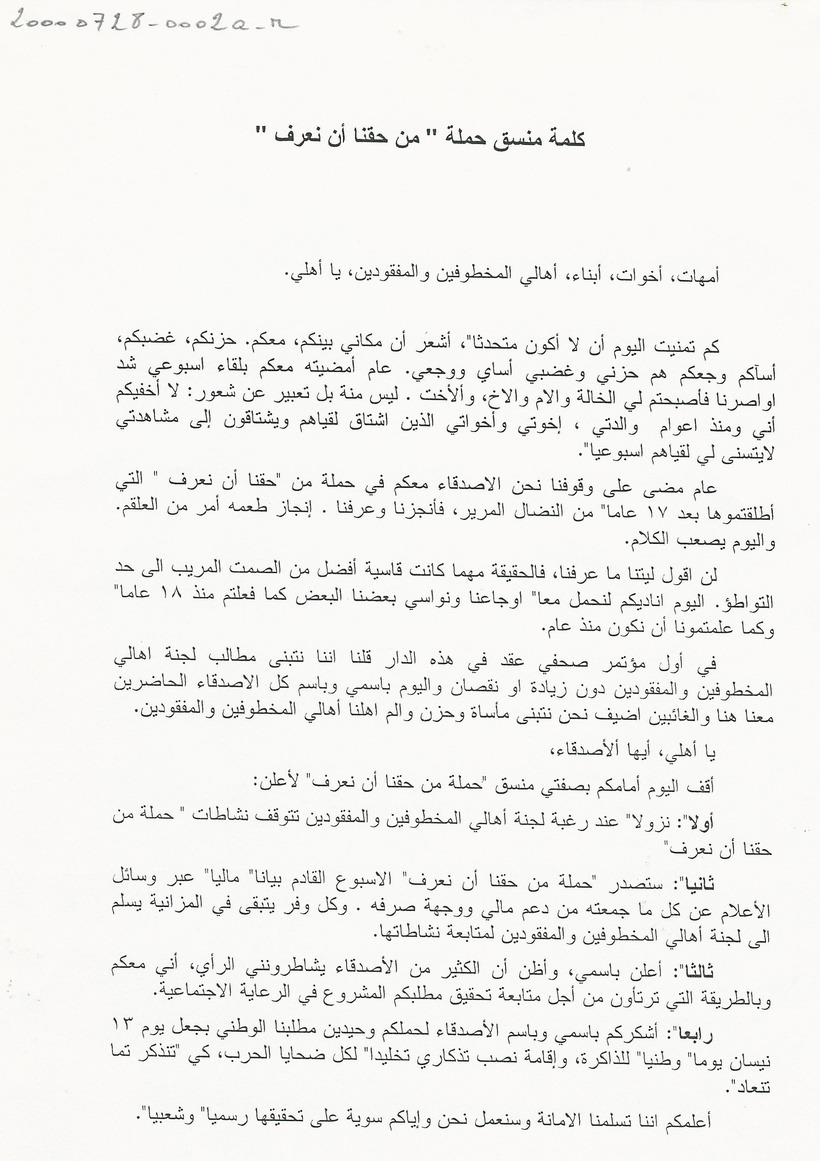 20000728-0002a_r
كلمة منسق حملة " من حقنا أن نعرف "
أمهات، أخوات، أبناء، أهالي المخطوفين والمفقودين، يا أهلي.
كم تمنيت اليوم أن لا أكون متحدثا"، أشعر أن مكاني بينكم، معكم. حزنكم، غضبكم،
أسآكم وجعكم هم حزني وغضبي أساي ووجعي. عام أمضيته معكم بلقاء اسبوعي شد
اواصرنا فأصبحتم لي الخالة والام والاخ، وألأخت . ليس منة بل تعبير عن شعور: لا أخفيكم
أني ومنذ اعوام والدتي ، إخوتي وأخواتي الذين اشتاق لقياهم ويشتاقون إلى مشاهدتي
لايتسنى لي لقياهم اسبوعيا".
عام مضى على وقوفنا نحن الاصدقاء معكم في حملة من "حقنا أن نعرف " التي
أطلقتموها بعد ١٧ عاما" من النضال المرير، فأنجزنا وعرفنا . إنجاز طعمه أمر من العلقم.
واليوم يصعب الكلام.
لن اقول ليتنا ما عرفنا، فالحقيقة مهما كانت قاسية أفضل من الصمت المريب الى حد
التواطؤ. اليوم اناديكم لنحمل معا" اوجاعنا ونواسي بعضنا البعض كما فعلتم منذ ١٨ عاما"
وكما علمتمونا أن نكون منذ عام.
في أول مؤتمر صحفي عقد في هذه الدار قلنا اننا نتبنى مطالب لجنة اهالي
المخطوفين والمفقودين دون زيادة او نقصان واليوم باسمي وباسم كل الاصدقاء الحاضرين
معنا هنا والغائبين اضيف نحن نتبنى مأساة وحزن والم اهلنا أهالي المخطوفين والمفقودين.
يا أهلي، أيها ألأصدقاء،
أقف اليوم أمامكم بصفتي منسق "حملة من حقنا أن نعرف" لأعلن:
أولا": نزولا" عند رغبة لجنة أهالي المخطوفين والمفقودين تتوقف نشاطات " حملة من
حقنا أن نعرف"
ثانيا": ستصدر "حملة من حقنا أن نعرف" الاسبوع القادم بيانا" ماليا" عبر وسائل
الأعلام عن كل ما جمعته من دعم مالي ووجهة صرفه . وكل وفر يتبقى في المزانية يسلم
الى لجنة أهالي المخطوفين والمفقودين لمتابعة نشاطاتها.
ثالثا": أعلن باسمي، وأظن أن الكثير من الأصدقاء يشاطرونني الرأي، أني معكم
وبالطريقة التي ترتأون من أجل متابعة تحقيق مطلبكم المشروع في الرعاية الاجتماعية.
رابعا": أشكركم باسمي وباسم الأصدقاء لحملكم وحيدين مطلبنا الوطني بجعل يوم ١٣
نيسان يوما" وطنيا" للذاكرة، وإقامة نصب تذكاري تخليدا" لكل ضحايا الحرب، كي "تنذكر تما
تنعاد".
أعلمكم اننا تسلمنا الامانة وسنعمل نحن وإياكم سوية على تحقيقها رسميا" وشعبيا".